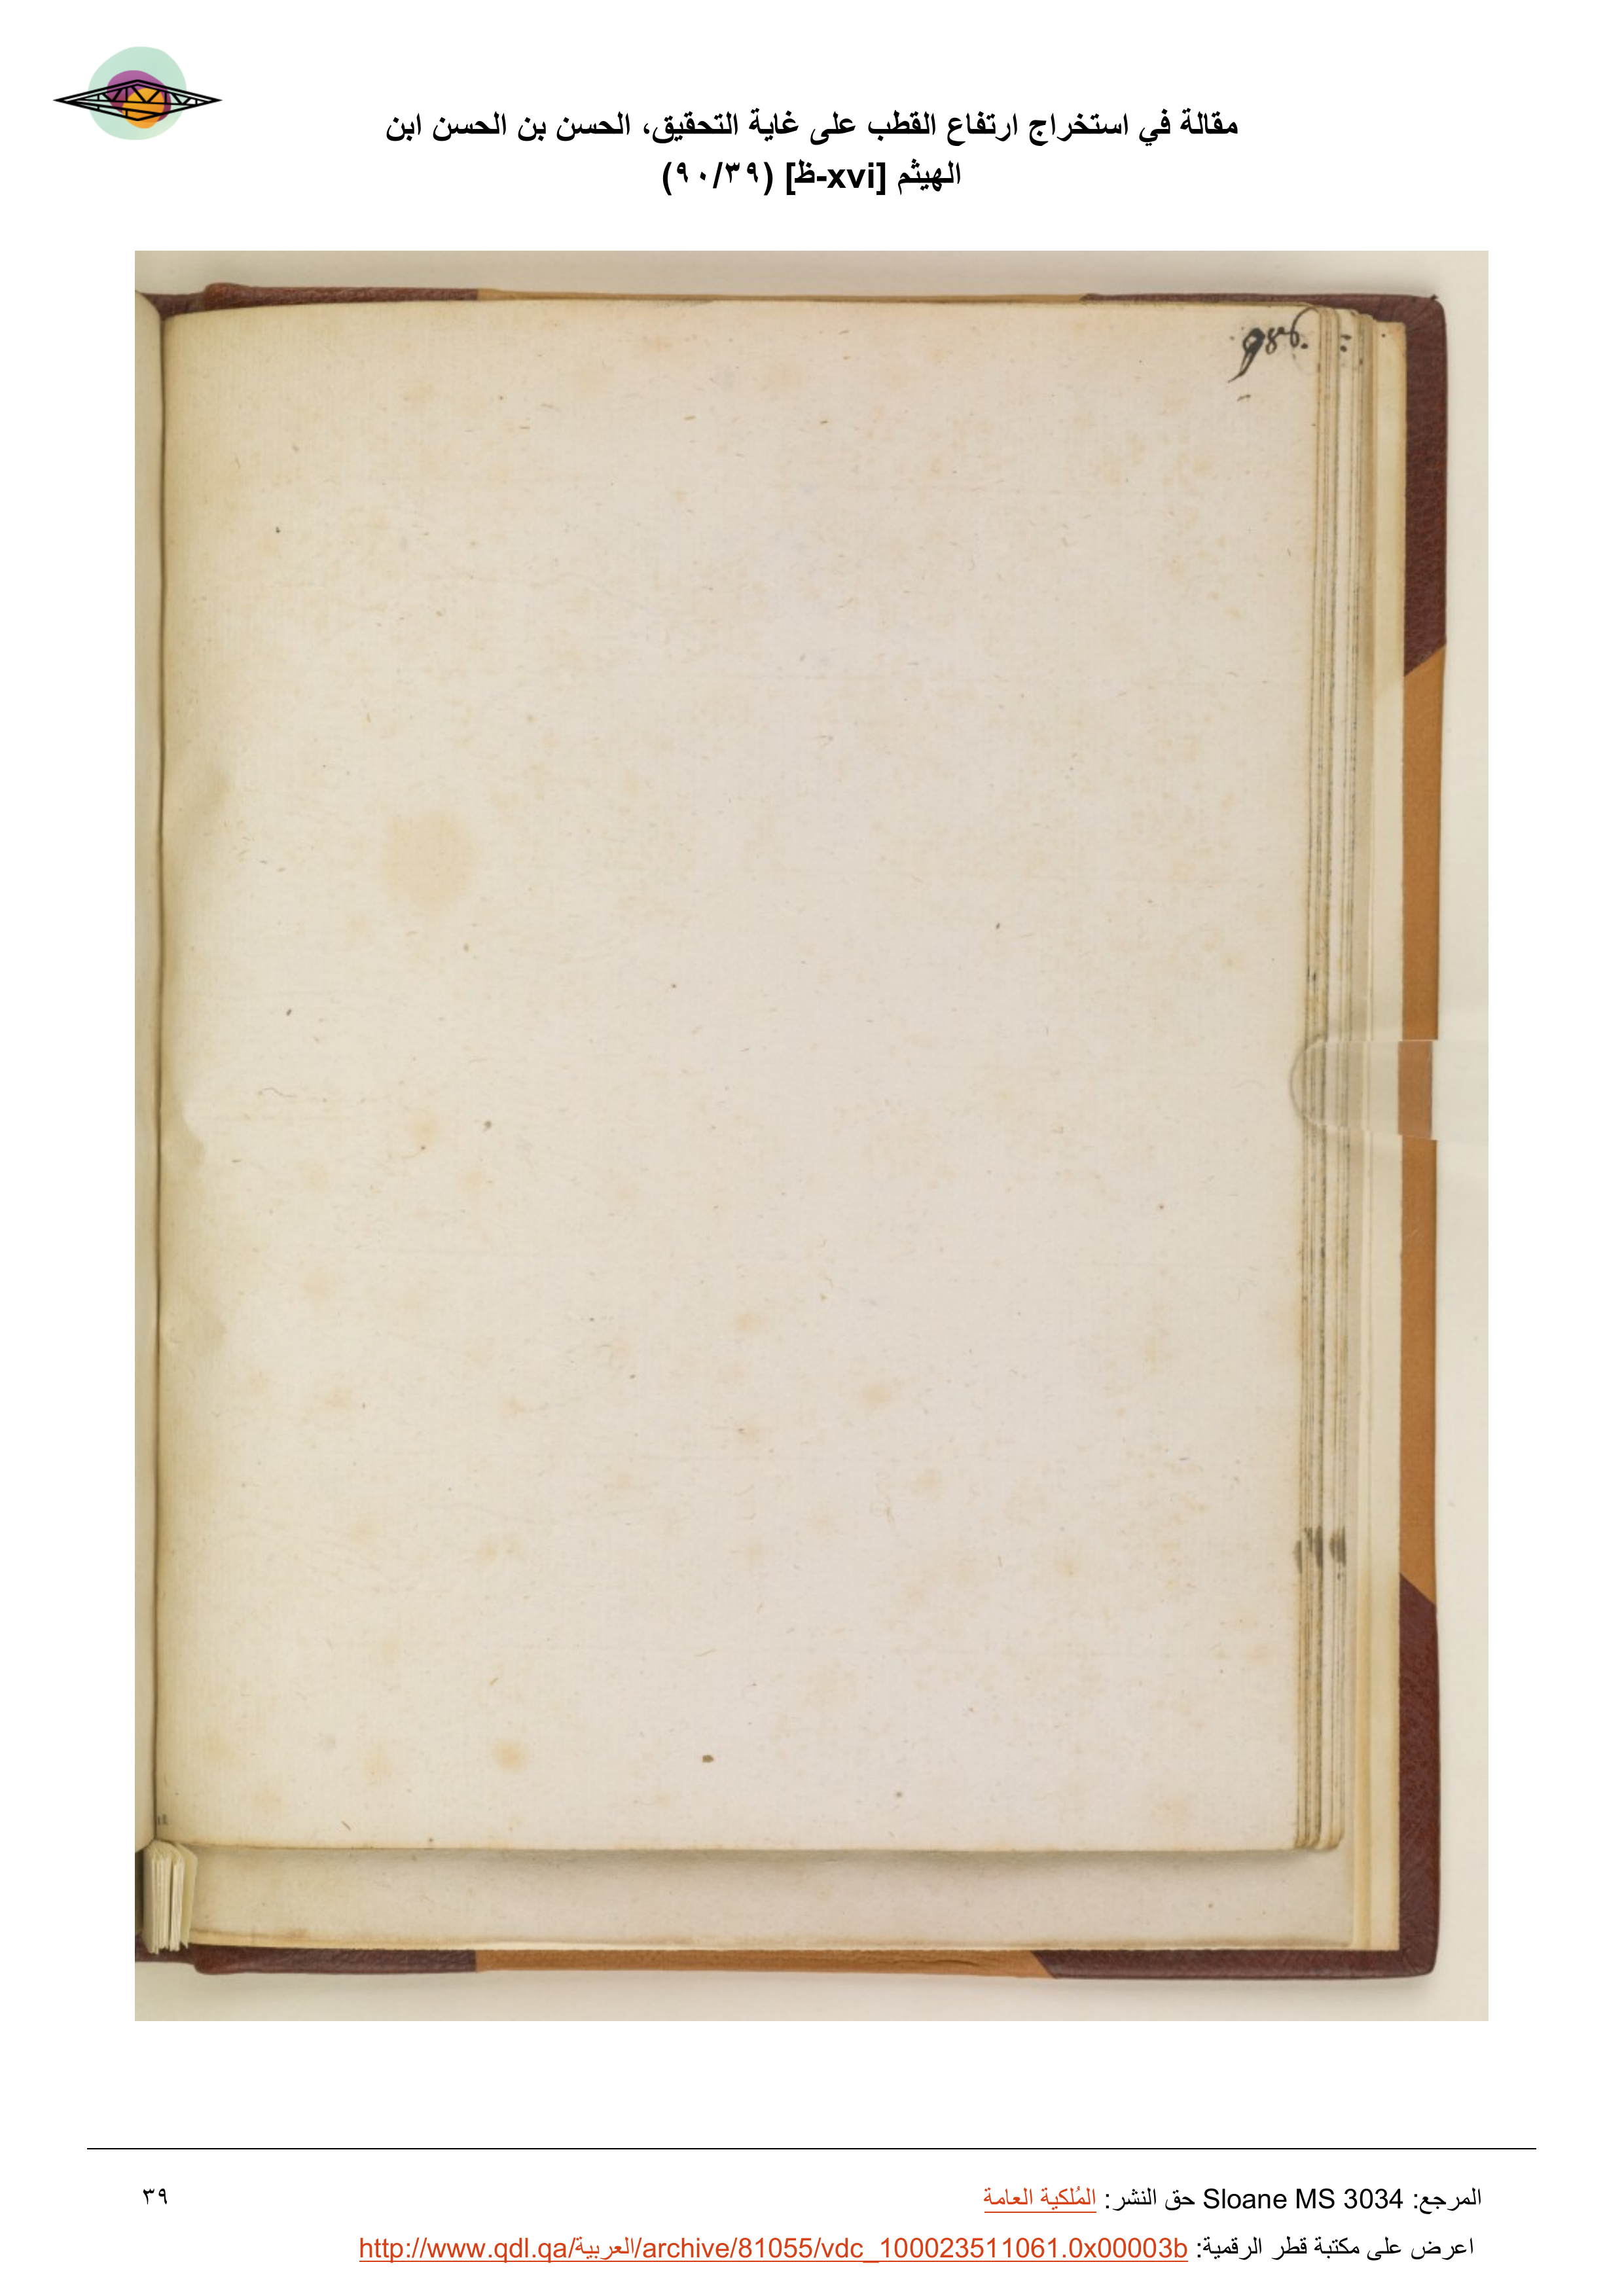 مقالة في استخراج ارتفاع القطب على غاية التحقيق، الحسن بن الحسن ابن
الهيثم [xvi-ظ] (٩٠/٣٩)
986.
المرجع: Sloane MS 3034 حق النشر: المُلكية العامة
٣٩
اعرض على مكتبة قطر الرقمية: http://www.qdl.qa/العربية/archive/81055/vdc_100023511061.0x00003b